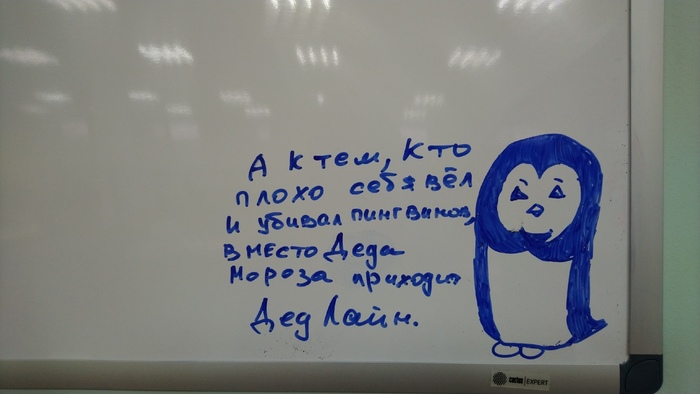 А к тем, кто
плохо себя вёл
и убивал пингвинов,
вместо Деда
Мороза приходит
Дед Лайн.
cactus EXPERT